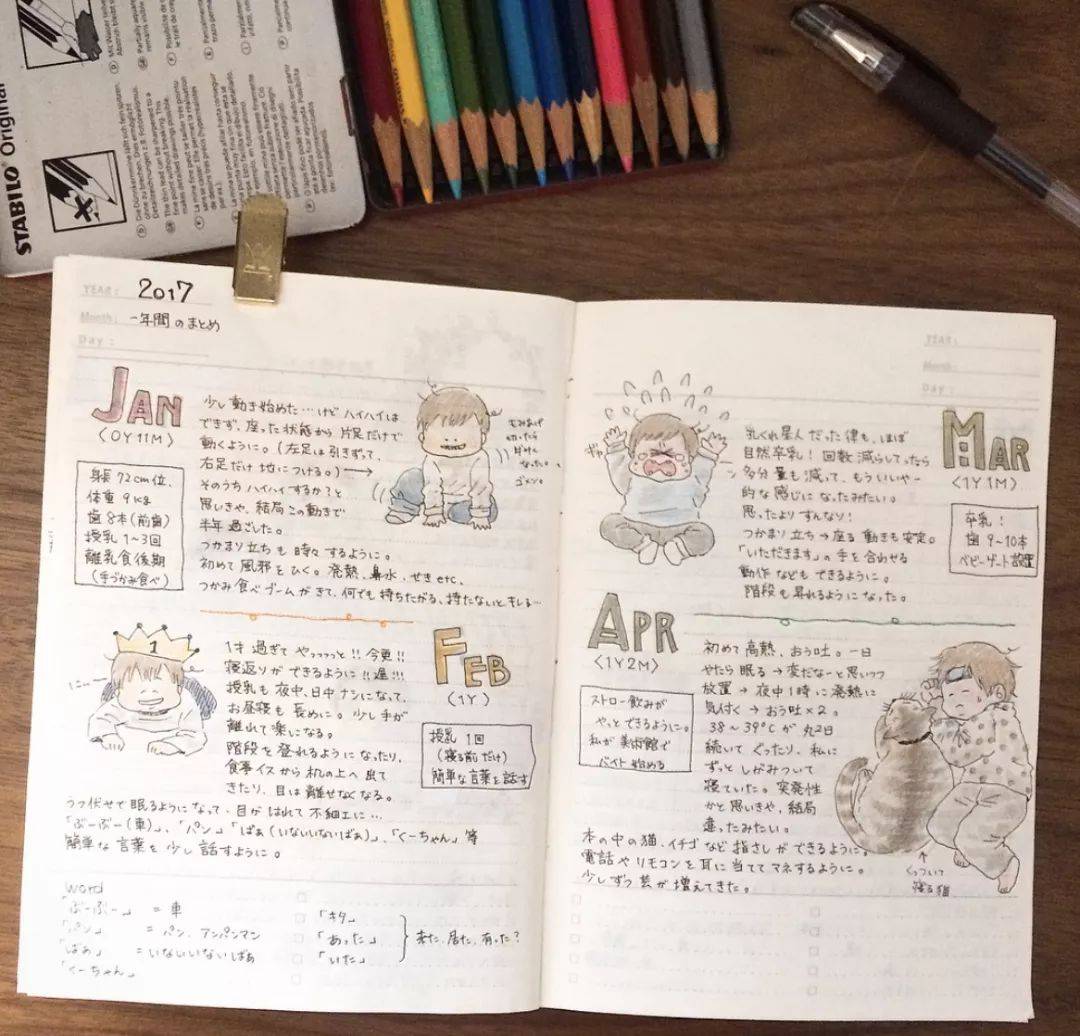 STABILO® Original
YEAR: 2017
Month: 一年間のまとめ
Day:
JAN
〈0Y11M〉
身長 72cm位、
体重 9kg
歯 8本(前歯)
授乳 1~3回
離乳食後期
(手づかみ食べ)
少し動き始めた…けどハイハイは
できず、座った状態から片足だけで
動くように。(左足は引きずって、
右足だけ地につける。)→
そのうちハイハイするか?と
思いきや、結局この動きで
半年過ごした。
つかまり立ちも時々するように。
初めて風邪をひく。発熱、鼻水、せきetc、
つかみ食べブームがきて、何でも持ちたがる、持たないとキレる…
もみあげ
切ったら
なった。
ゴメン。
1
FEB
〈1Y〉
授乳 1回
(寝る前だけ)
簡単な言葉を話す
1才過ぎてやっっっっと!!今更!!
寝返りができるように!!遅!!!
授乳も夜中、日中ナシになって、
お昼寝も長めに。少し手が
離れて楽になる。
階段を登れるようになったり、
食事イスから机の上へ出て
きたり、目は離せなくなる。
うつ伏せで眠るようになって、目がはれて不細工に…
「ぶーぶー(車)」、「パン」「ばぁ(いないいないばぁ)」、「くーちゃん」等
簡単な言葉を少し話すように。
word
「ぶーぶー」 = 車
「パン」 = パン、アンパンマン
「ばぁ」 = いないいないばぁ
「くーちゃん」
「キタ」
「あった」
「いた」
来た、居た、有った?
YEAR:
Month:
Day:
MAR
〈1Y1M〉
卒乳!
歯 9~10本
ベビーゲート設置
乳くれ星人だった律も、ほぼ
自然卒乳!回数減らしてったら
多分量も減って、もういいやー
的な感じになったみたい。
思ったよりすんなり!
つかまり立ち→座る動きも安定。
「いただきます」の手を合わせる
動作などもできるように。
階段も昇れるようになった。
APR
〈1Y2M〉
ストロー飲みが
やっとできるように。
私が美術館で
バイト始める
初めて高熱、おう吐。一日
やたら眠る→変だなーと思いつつ
放置→夜中1時に発熱に
気付く→おう吐×2。
38~39℃が丸2日
続いてぐったり、私に
ずっとしがみついて
寝ていた。突発性
かと思いきや、結局
違ったみたい。
本の中の猫、イチゴなど指さしができるように。
電話やリモコンを耳に当ててマネするように。
少しずつ芸が増えてきた。
↑
くっついて
寝る猫